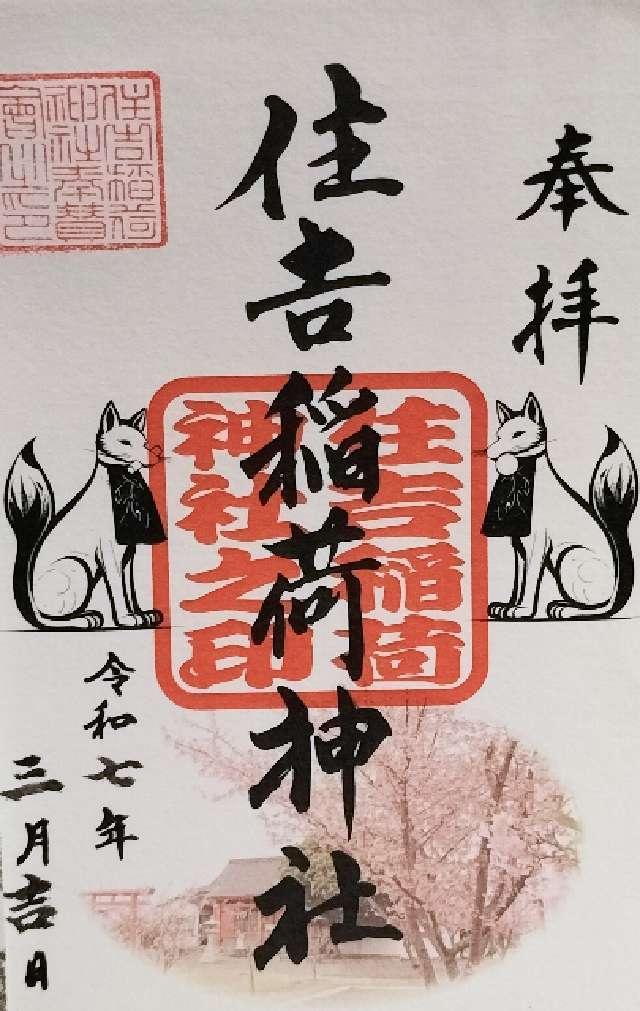 奉拝
住吉稲荷神社
住吉稲荷
神社之印
令和七年
三月吉日
住吉稲荷
神社奉賛
會之印